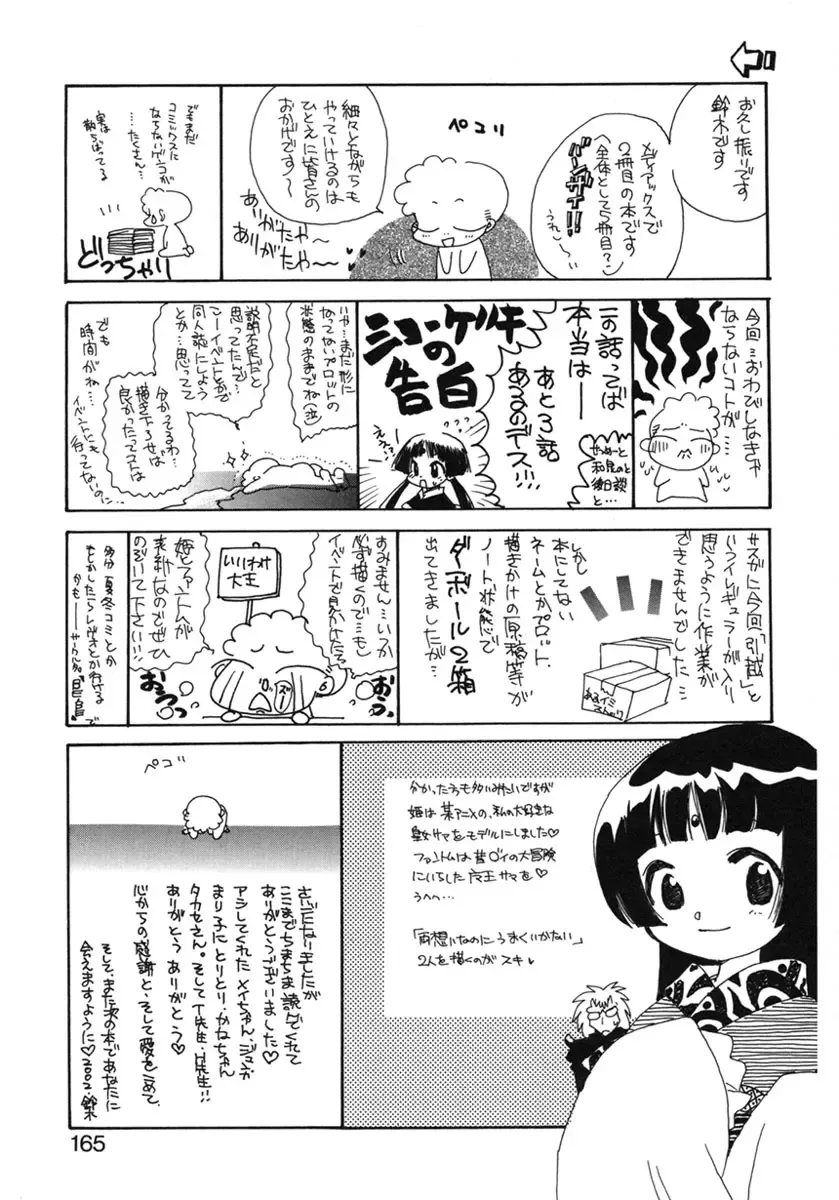 お久し振りです
鈴木です
メディアックスで
2冊目の本です
(全体として5冊目?)
バンザイ!!
うれし〜
ペコリ
細々とながらも
やっていけるのは
ひとえに皆さんの
おかげです〜
ありがたや〜
ありがたや〜
でもまだ
コミックスに
ならないゲンコが
…たくさん…
実は
散らばってる
どっちゃり
今回…おわびしなきゃ
ならないコトが……
この話ってば
本当は――
あと3話
あるのデス…!!
せつめーと
和晃のと
後日談
と…
の
告白
えぇっ
いや…まだ形に
なってないプロットの
状態のままでね(泣)
説明不足だと
思ってたんで…
こーイベントとかで
同人誌にしよう
とか…思ってて
分かってるわ…
描き下ろせば
良かったってコトは
でも
時間がね…
イベントにも
行ってないのに…
サスがに今回「引越」と
いうイレギュラーが入り
思うように作業が
できませんでした…
しかし
本にしてない
ネームとかプロット、
描きかけの原稿等が
ノート状態で
ダンボール2箱
出てきましたが…
すみません…いつか
必ず描くので…も
イベントで見かけたら
姫とファントムが
素敵なのでぜひ
のぞいて下さい!!!
いいわけ
大王
ズー
おうっ
おうっっ
多分夏冬コミとか
もしかしたらレヴォとか行ける
かも――
分かった方も多いみたいですが
姫は某アニメの、私の大好きな
皇女サマをモデルにしました♡
ファントムは昔ダイの大冒険
にいらした
サマを♡
うへへ…
「両想いなのにうまくいかない」
2人を描くのがスキ♡
ペコ゛
さいごになりましたが
ここまでちまちま読んでくれて
ありがとうございました♡
アシしてくれたメイちゃん、ジュンカ
まり子にとりとり・かなちゃん
タカセさん。そしてT先生・H先生!!
ありがとう ありがとう♡
心からの感謝と、そして愛をこめて、
そして、また次の本であなたに
会えますように♡2002.鈴木
165